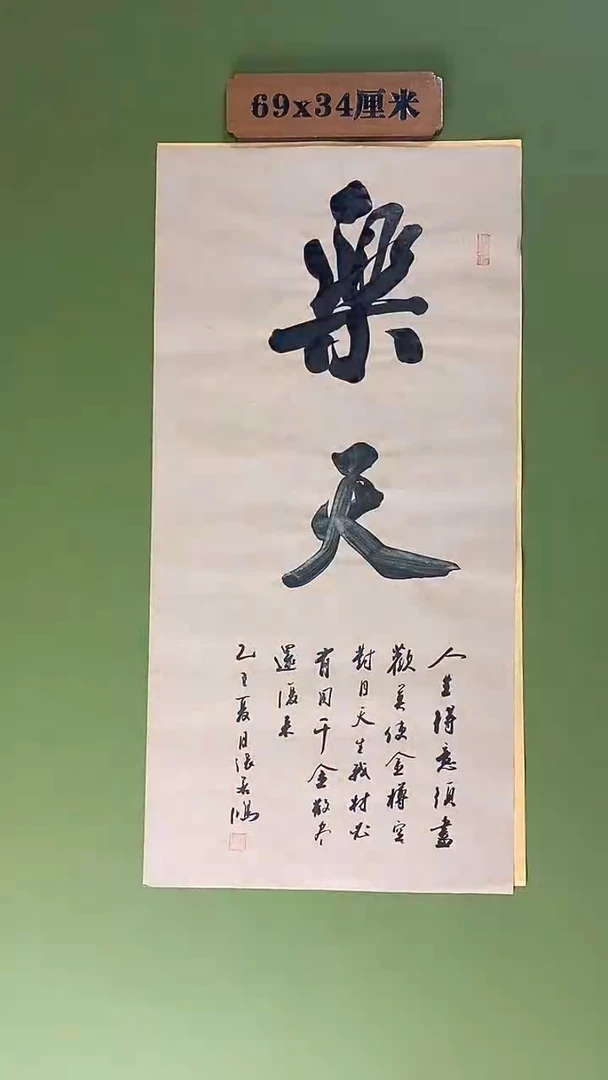 69x34厘米
樂
天
人生得意须盡
歡莫使金樽空
對月天生我材必
有用千金散尽
還復来
乙巳夏月張